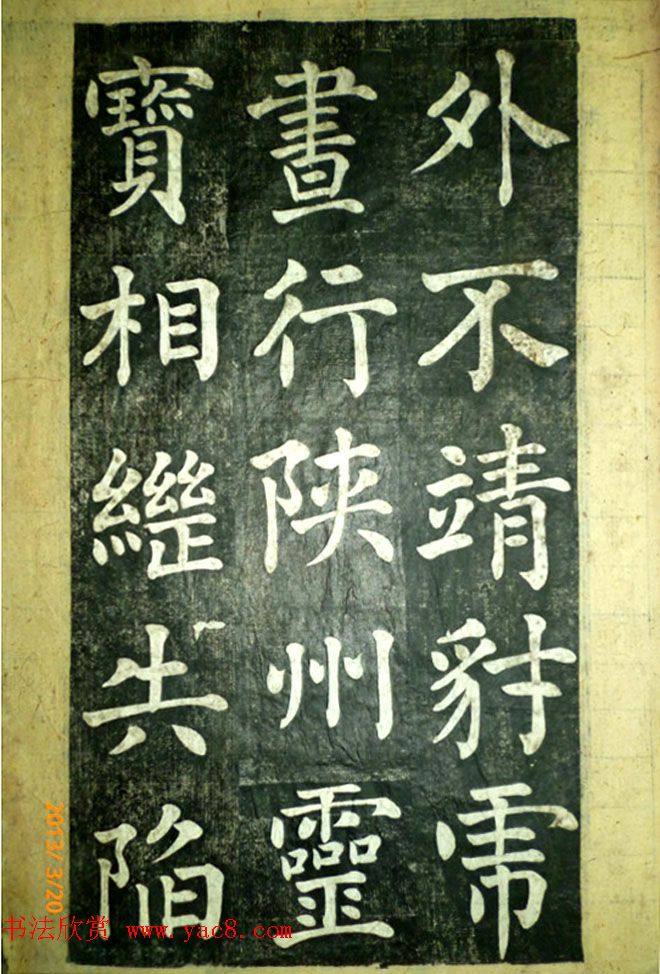 外不靖豺虎
晝行陝州靈
寶相繼失陷
2013/3/20
书法欣赏 www.yac8.com